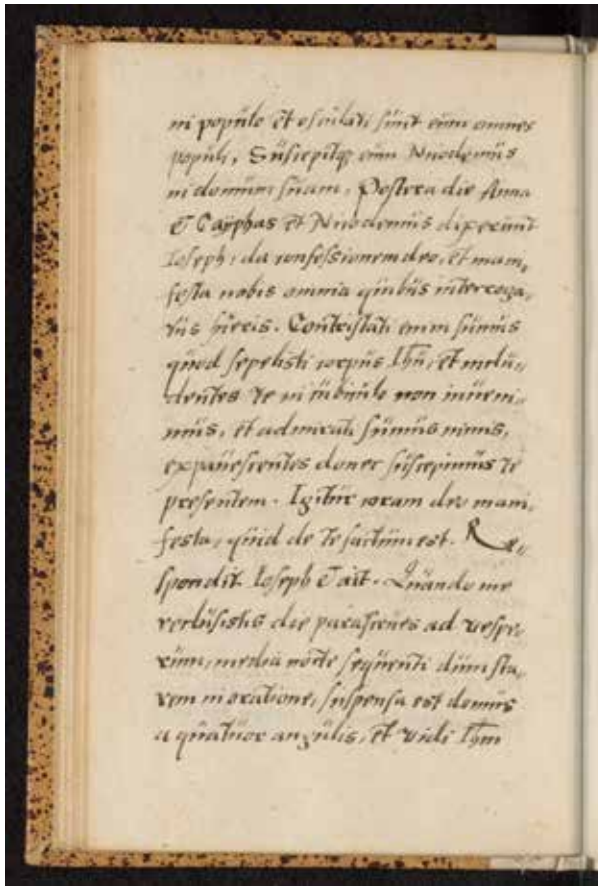 ni populo et osculati sunt eum omnes
populi, Suscepitq₃ eum Nicodemus
in domum suam. Postera die Anna
& Cayphas et Nicodemus dixerunt
Ioseph, da confessionem deo, et mani,
festa nobis omnia quibus interroga,
tus fueris. Contristati enim sumus
quod sepelisti corpus Ihu, et inclu,,
dentes te in cubiculo non inueni,,
mus, et admirati sumus nimis,
expauescentes donec suscepimus te
presentem. Igitur coram deo mani,
festa, quid de te factum est. Re,,
spondit Ioseph & ait. Quando me
reclusistis die parasceues ad uespe,
rum, media nocte sequenti dum sta,
rem in oratione, suspensa est domus
a quatuor angulis, et vidi Ihm